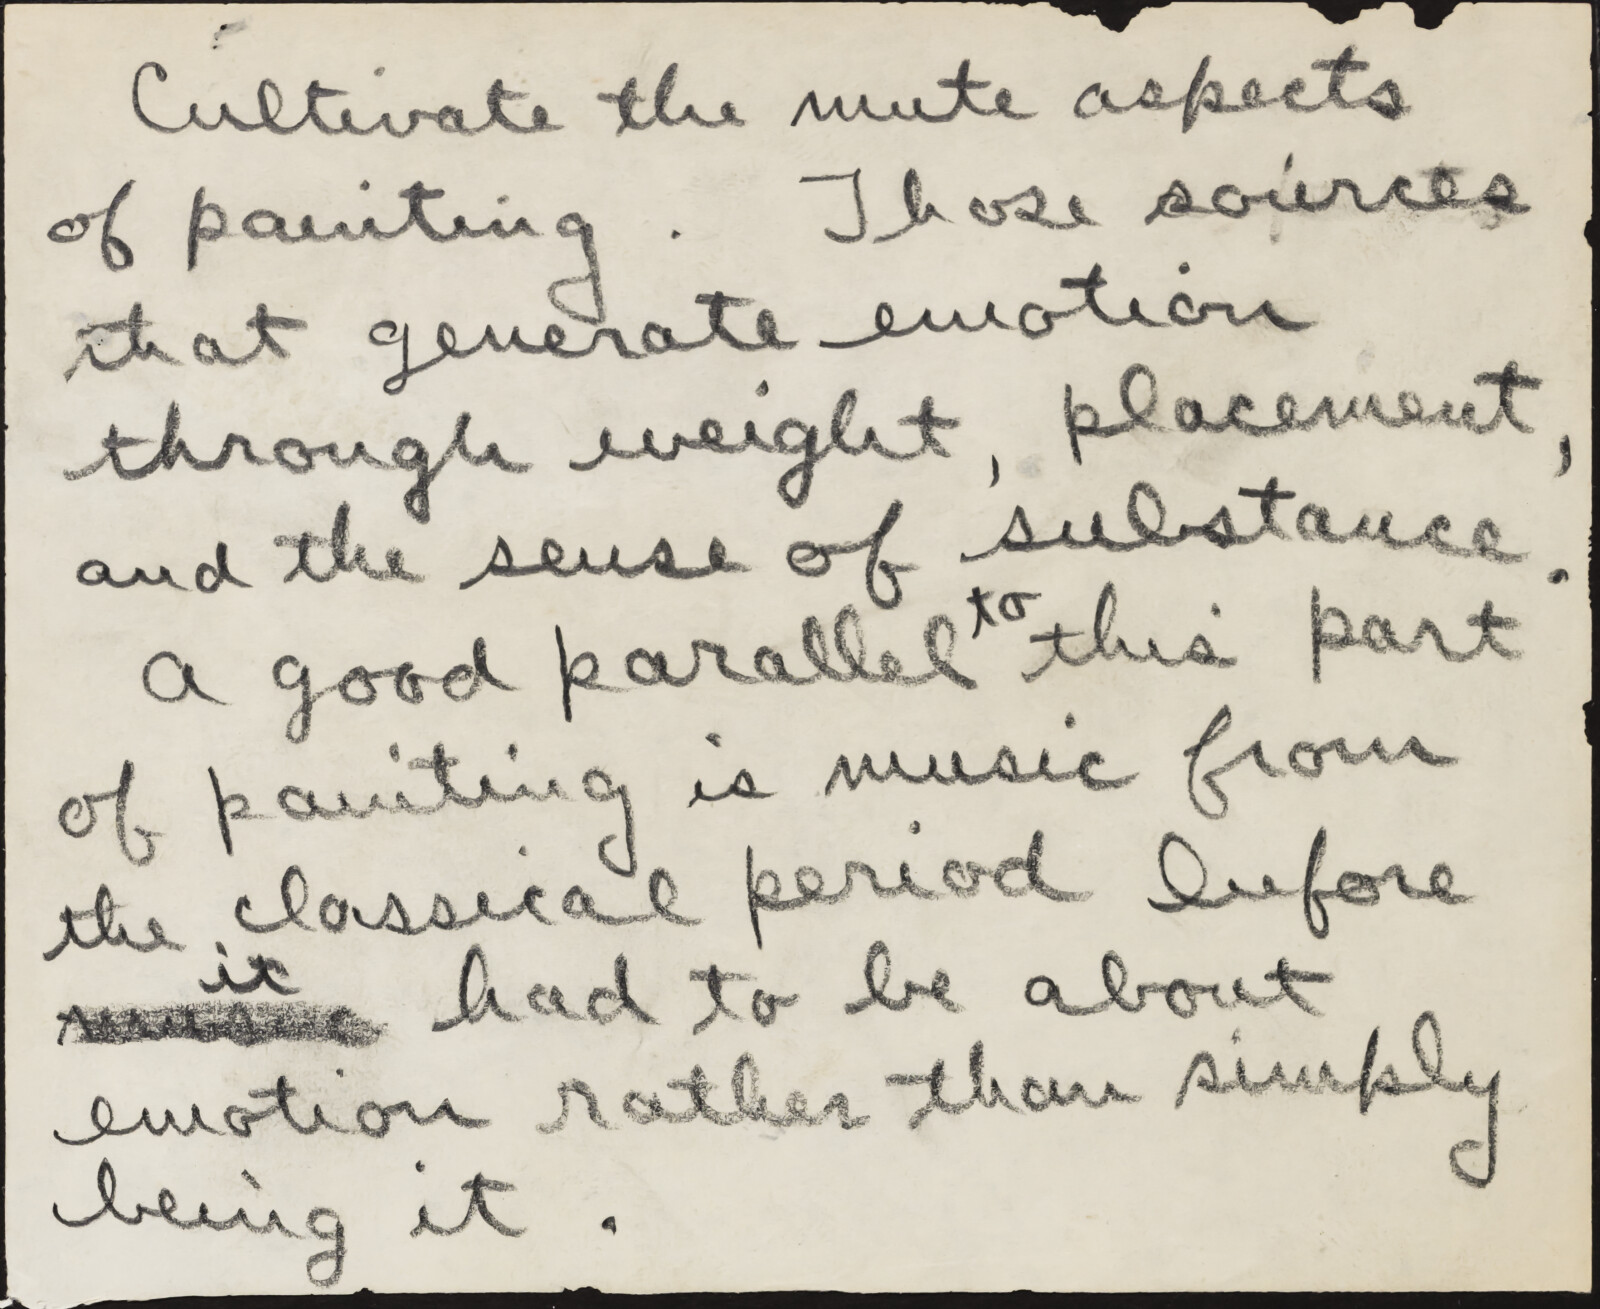 Cultivate the mute aspects
of painting. Those sources
that generate emotion
through weight, placement,
and the sense of substance.
A good parallel to this part
of painting is music from
the classical period before
it
music had to be about
emotion rather than simply
being it.